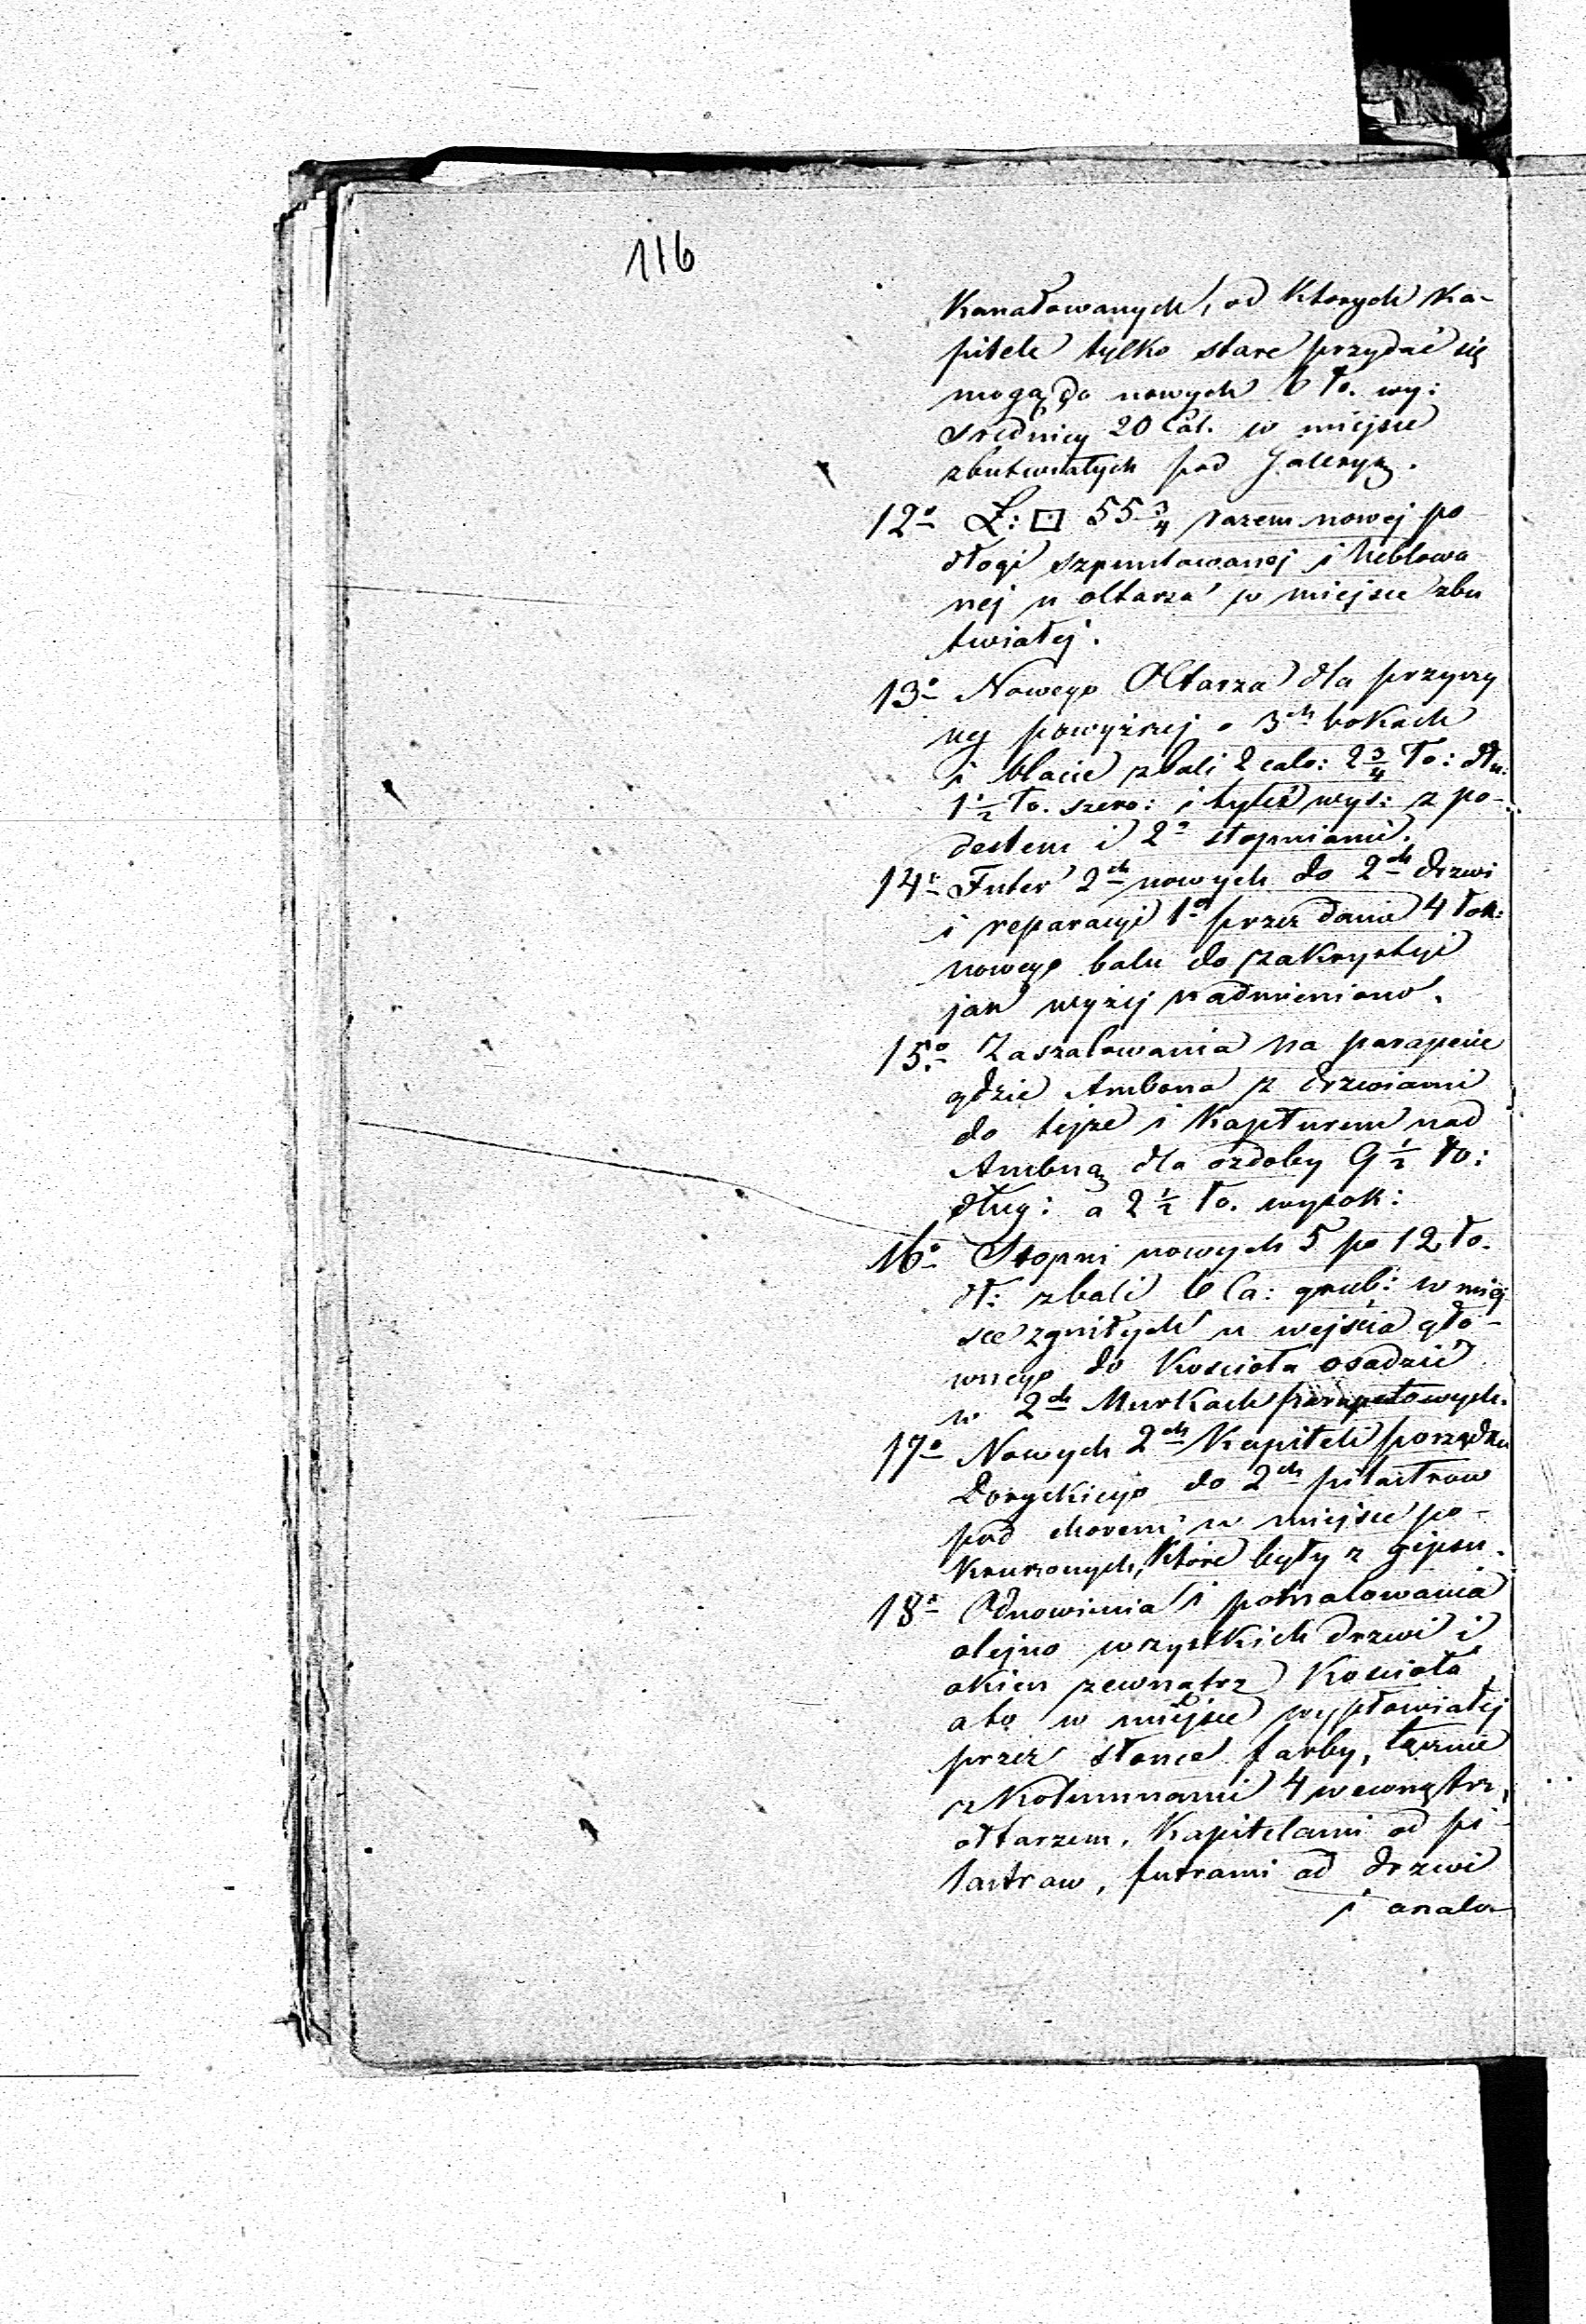 116
Kanałowanych, od których ka-
pitele tylko stare przydać się
mogą do nowych 6 ło. wy:
średnicy 20 Cal. w miejsce
zbutwiałych pod Galeryą.
12o Ł: □ 55 3/4 razem nowej po
dłogi szpuntowanej i heblowa
nej u ołtarza w miejsce zbu
twiałej.
13o Nowego Ołtarza dla przyczy
ny powyższej o 3ch bokach
i blacie z bali 2 calo: 2 3/4 ło: dłu:
1 1/2 ło. szero: i tyleż wys: z po-
destem i 2a stopniami.
14o Futer 2ch nowych do 2ch drzwi
i reparacyi 1o przez danie 4 łok:
nowego balu do zakrystyi
jak wyżej nadmieniono.
15o Zaszalowania na parapecie
gdzie Ambona z drzwiami
do tejże i Kapturem nad
Amboną dla ozdoby 9 1/2 ło:
dług: a 2 1/2 ło. wysok:
16o Stopni nowych 5 po 12 ło.
dł: z bali 6 Ca: grub: w miej
sce zgniłych u wejścia głó-
wnego do Kościoła osadzić
w 2ch Murkach parapetowych.
17o Nowych 2ch Kapiteli porządku
Doryckiego do 2ch pilastrow
pod chorem w miejsce po-
kruszonych, które były z gipsu.
18o Odnowienia i pomalowania
olejno wszystkich drzwi i
okien zewnątrz Kościoła
a to w miejsce wypłowiałej
przez słońce farby, łącznie
z Kolumnami 4 wewnątrz,
ołtarzem, Kapitelami od pi-
lastraw, futrami od drzwi
i